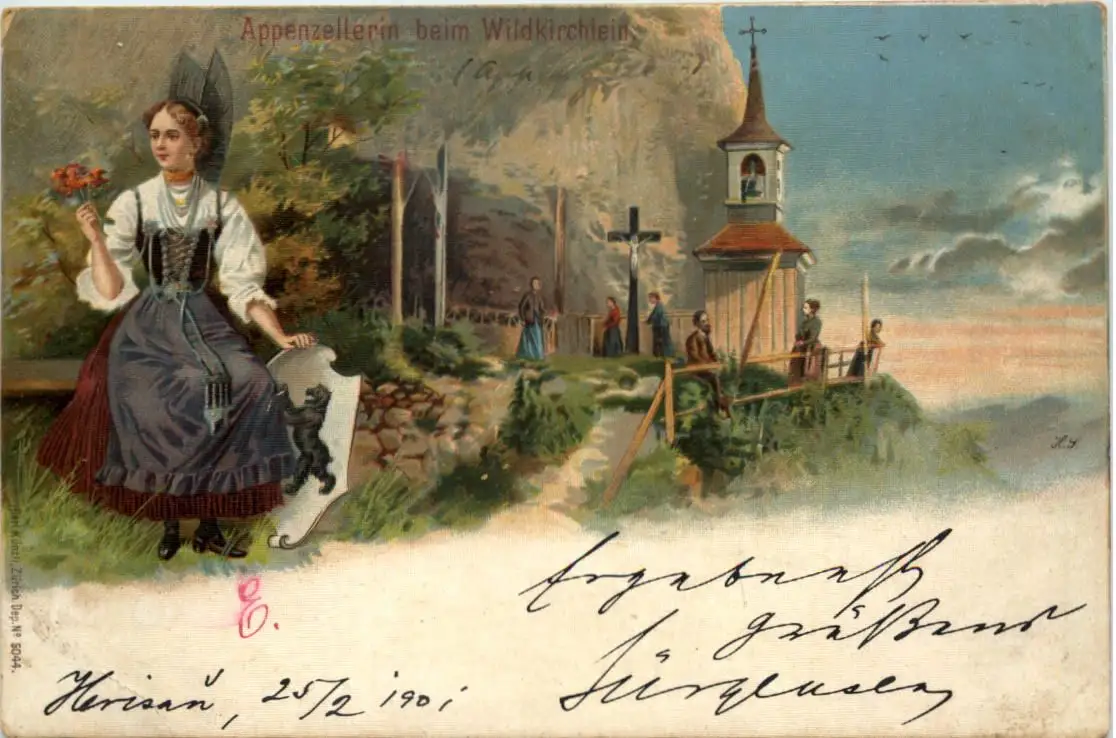 Appenzellerin beim Wildkirchlein
(App )
H.S
Künzli, Zürich Dep. Nº 9044.
E.
Ergebenst
grüßend
Herisau, 25/2 1901